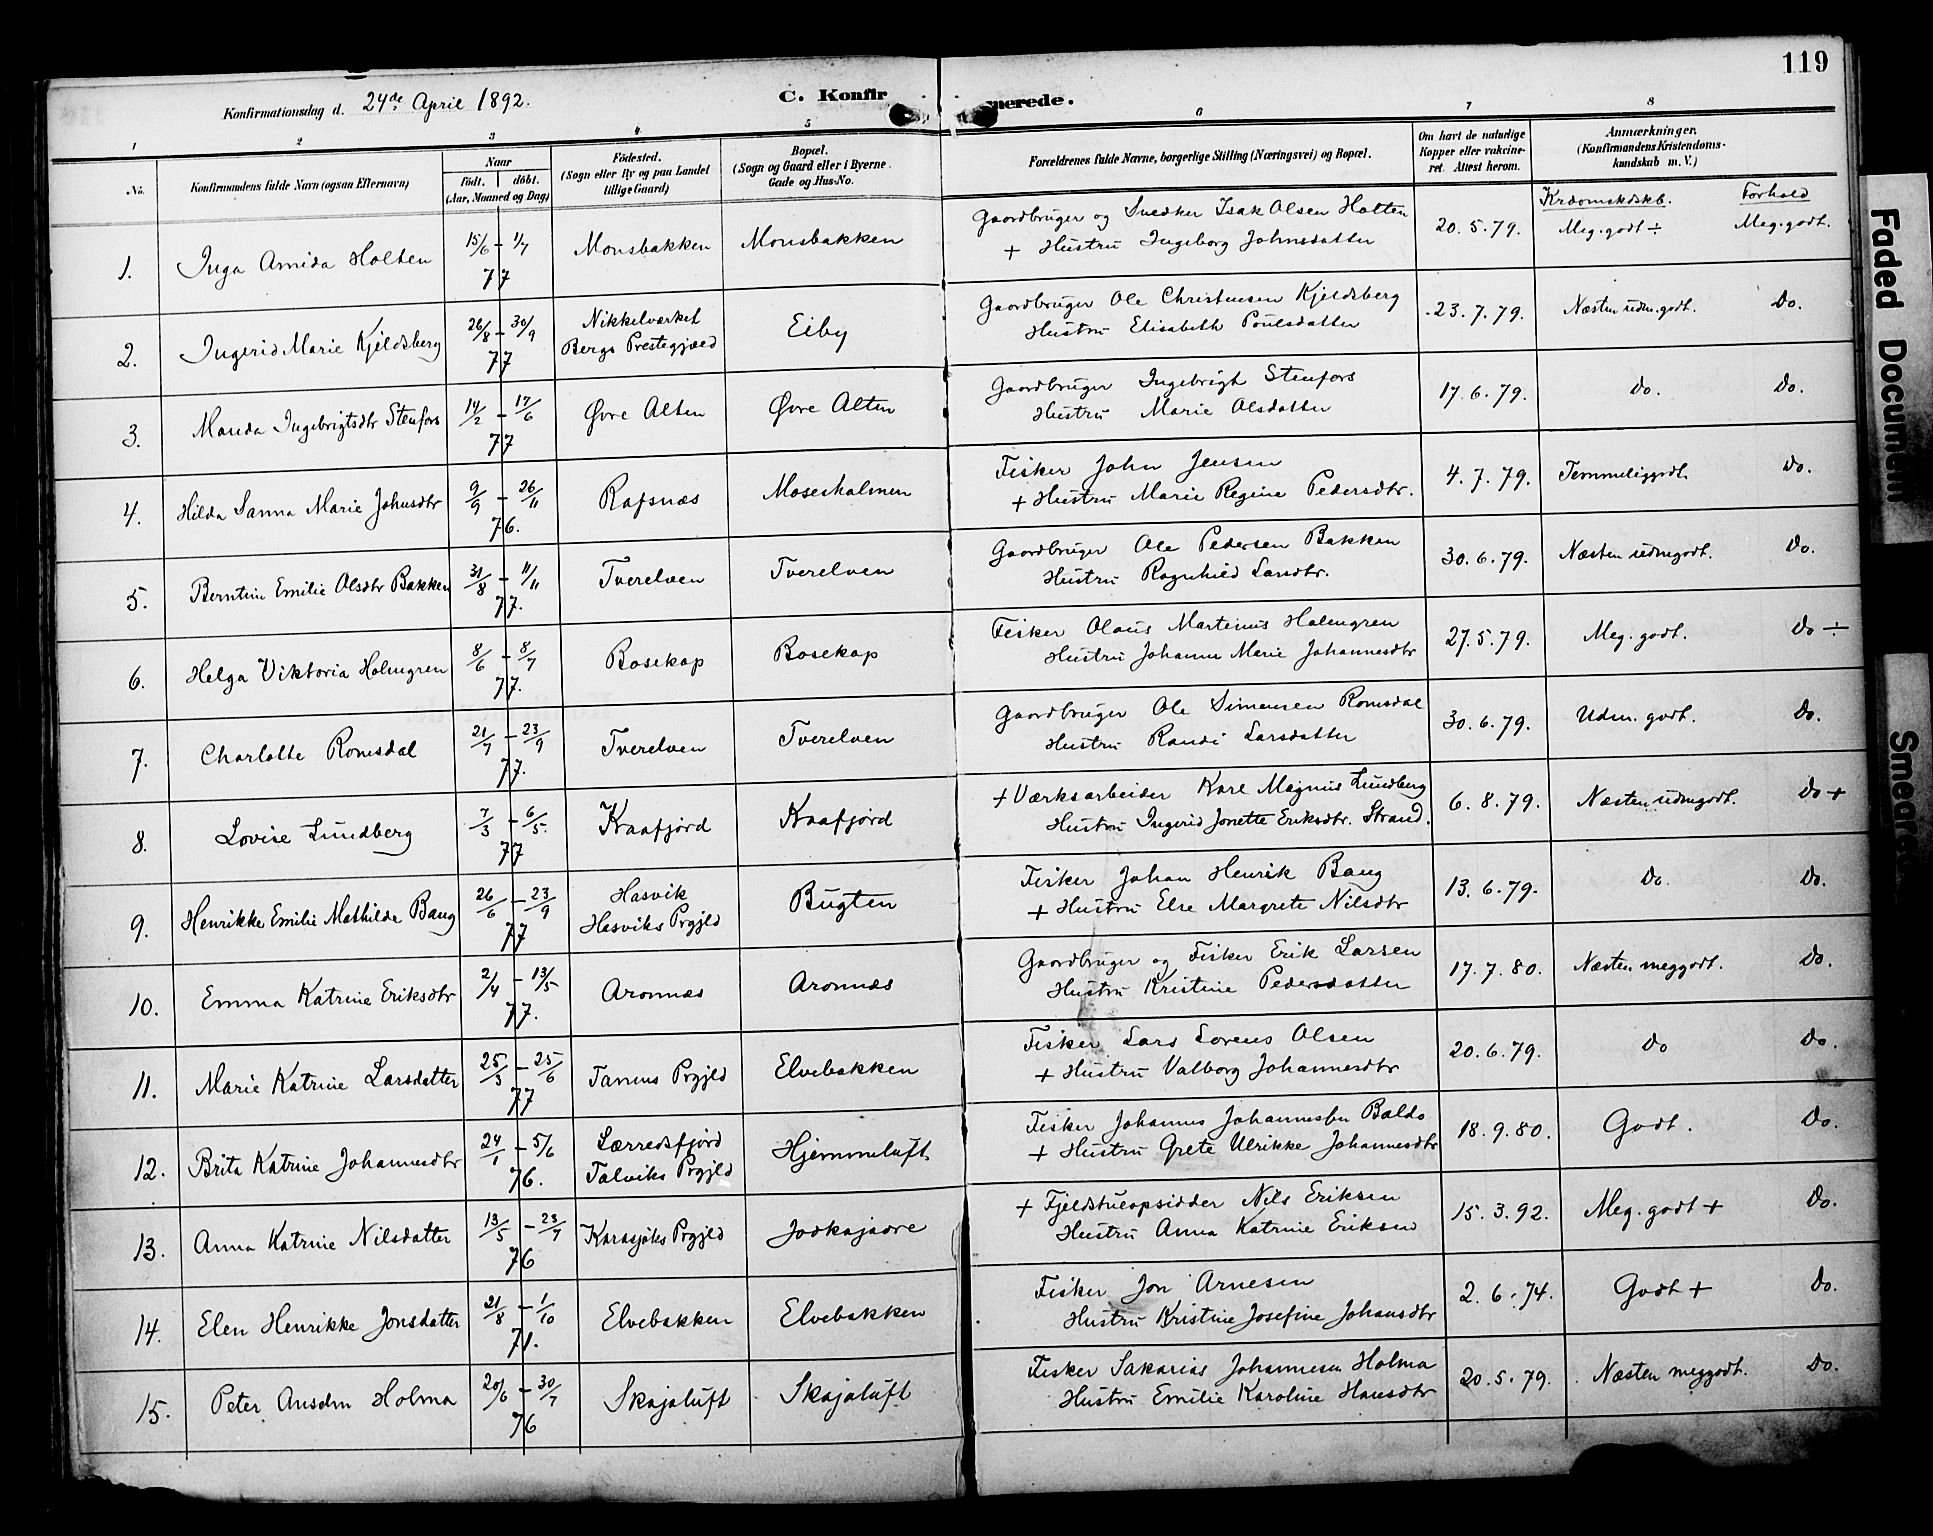 119
Konfirmationsdag d. 24de April 1892.
C. Konfir merede.
1 2 3 4 5 6 7 8
No. Konfirmandens fulde Navn (ogsaa Efternavn)
Naar født. døbt. (Aar, Maaned og Dag)
Fødested. (Sogn eller By og paa Landet tillige Gaard)
Bopæl. (Sogn og Gaard eller i Byerne Gade og Hus-No.
Forældrenes fulde Navne, borgerlige Stilling (Næringsvei) og Bopæl.
Om havt de naturlige Kopper eller vakcineret. Attest herom.
Anmærkninger. (Konfirmandens Kristendomskundskab m. V.)
Krdomskdskb. Forhold
1. Inga Amida Holten 15/6 - 1/7 77 Monsbakken Monsbakken Gaardbruger og Snedker Isak Olsen Holten 20.5.79. Meg. godt ÷ Meg. godt.
+ Hustru Ingeborg Johnsdatter
2. Ingerid Marie Kjeldsberg 26/8 - 30/9 77 Nikkelværket Bergs Prestegjæld Eiby Gaardbruger Ole Christensen Kjeldsberg 23.7.79. Næsten udm. godt. Do.
Hustru Elisabeth Poulsdatter
3. Manda Ingebrigtsdtr Stenfors 14/2 - 17/6 77 Øvre Alten Øvre Alten Gaardbruger Ingebrigt Stenfors 17.6.79. Do. Do.
Hustru Marie Olsdatter
4. Hilda Sanna Marie Johnsdtr 9/9 - 26/11 76. Rafsnæs Moseholmen Fisker John Jensen 4.7.79. Temmelig godt. Do.
+ Hustru Marie Regine Pedersdtr.
5. Berntine Emilie Olsdtr Bakken 31/8 - 11/11 77. Tverelven Tverelven Gaardbruger Ole Pedersen Bakken 30.6.79. Næsten udmgodt. Do.
Hustru Ragnhild Larsdtr.
6. Helga Viktoria Holmgren 8/6 - 8/7 77. Bosekop Bosekop Fisker Olaus Martinus Holmgren 27.5.79. Meg. godt. Do ÷
Hustru Johanne Marie Johannesdtr
7. Charlotte Romsdal 21/7 - 23/9 77. Tverelven Tverelven Gaardbruger Ole Simonsen Romsdal 30.6.79. Udm. godt. Do.
Hustru Randi Larsdatter
8. Lovise Lundberg 7/3 - 6/5. 77 Kaafjord Kaafjord + Værksarbeider Karl Magnus Lundberg 6.8.79. Næsten udmgodt. Do +
Hustru Ingerid Jonette Eriksdtr. Strand.
9. Henrikke Emilie Mathilde Baug 26/6 - 23/9 77 Hasvik Hasviks Prgjld Bugten Fisker Johan Henrik Baug 13.6.79. Do. Do.
+ Hustru Else Margrete Nilsdtr
10. Emma Katrine Eriksdtr 2/4 - 13/5 77. Aronnæs Aronnæs Gaardbruger og Fisker Erik Larsen 17.7.80. Næsten meggodt. Do.
Hustru Kristine Pedersdatter
11. Marie Katrine Larsdatter 25/3 - 25/6 77 Tanens Prgjld Elvebakken Fisker Lars Lorens Olsen 20.6.79. Do Do.
+ Hustru Valborg Johannesdtr
12. Brita Katrine Johannesdtr 24/1 - 5/6 76. Lærredsfjord Talviks Prgjld Hjemmeluft Fisker Johannes Johannessen Baldo 18.9.80. Godt. Do.
+ Hustru Grete Ulrikke Johannesdtr
13. Anna Katrine Nilsdatter 13/5 - 23/7 76 Karasjoks Prgjld Jodkajavre + Fjeldstueopsidder Nils Eriksen 15.3.92. Meg. godt + Do.
Hustru Anna Katrine Eriksen
14. Elen Henrikke Jonsdatter 21/8 - 1/10 71. Elvebakken Elvebakken Fisker Jon Arnesen 2.6.74. Godt + Do.
Hustru Kristine Josefine Johansdtr
15. Peter Ansdm Holma 20/6 - 30/7 76 Skajaluft Skajaluft Fisker Sakarias Johannesen Holma 20.5.79. Næsten meggodt. Do.
Hustru Emilie Karoline Hansdtr
Faded Document
Smear